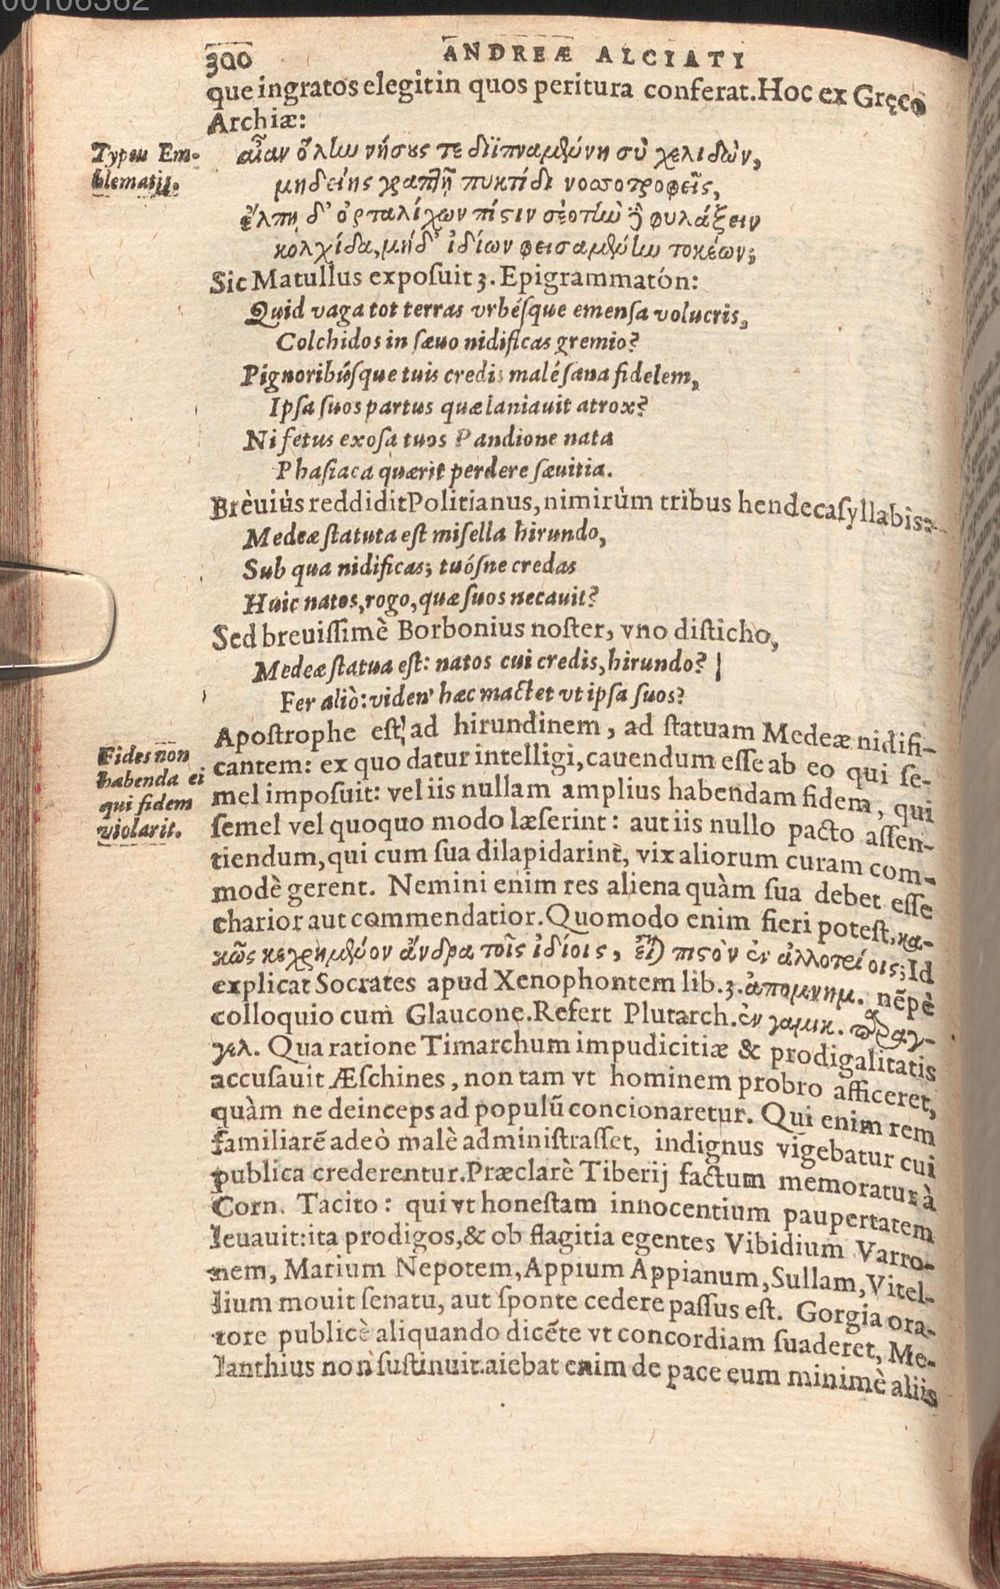 00106362
300
ANDREÆ ALCIATI
que ingratos elegit in quos peritura conferat. Hoc ex Gręco
Archiæ:
Typus Em-
blematis.
αἶαν ὅλlω νήσους τε διϊπναμϑύνη σὺ χελιδὼν,
μηδείης γραπlῇ πυκτίδι νοοσοτροφεῖς,
ἔλπη δ' ὀρταλίχων πίςιν φυλάξειν
κολχίδα, μήδ' ἰδίων φεισαμϑύlω τοκέων;
Sic Matullus exposuit 3. Epigrammatón:
Quid vaga tot terras vrbésque emensa volucris,
Colchidos in sæuo nidificas gremio?
Pignoribúsque tuis credis malé sana fidelem,
Ipsa suos partus quæ laniauit atrox?
Ni fetus exosa tuos Pandione nata
Phasiaca quærit perdere sæuitia.
Brèuiùs reddidit Politianus, nimirùm tribus hendecasyllabis:
Medeæ statuta est misella hirundo,
Sub qua nidificas; tuósne credas
Huic natos, rogo, quæ suos necauit?
Sed breuissimè Borbonius noster, vno disticho,
Medeæ statua est: natos cui credis, hirundo?
Fer aliò: viden' hæc mactet vt ipsa suos?
Fides non
habenda ei
qui fidem
violarit.
Apostrophe est ad hirundinem, ad statuam Medeæ nidifi-
cantem: ex quo datur intelligi, cauendum esse ab eo qui se-
mel imposuit: vel iis nullam amplius habendam fidem, qui
semel vel quoquo modo læserint: aut iis nullo pacto assen-
tiendum, qui cum sua dilapidarint, vix aliorum curam com-
modè gerent. Nemini enim res aliena quàm sua debet esse
charior aut commendatior. Quomodo enim fieri potest, κα-
κῶς κεχρημϑύον ἄνδρα τοῖς ἰδίοις, πιςὸν ἐν ἀλλοτρίοις; Id
explicat Socrates apud Xenophontem lib. 3. ἀπομνημ. nẽpè
colloquio cum Glaucone. Refert Plutarch. ἐν γαμικ. παραγ-
γελ. Qua ratione Timarchum impudicitiæ & prodigalitatis
accusauit Æschines, non tam vt hominem probro afficeret,
quàm ne deinceps ad populũ concionaretur. Qui enim rem
familiarẽ adeò malè administrasset, indignus vigebatur cui
publica crederentur. Præclarè Tiberij factum memoratur à
Corn. Tacito: qui vt honestam innocentium paupertatem
leuauit: ita prodigos, & ob flagitia egentes Vibidium Varro-
nem, Marium Nepotem, Appium Appianum, Sullam, Vitel-
lium mouit senatu, aut sponte cedere passus est. Gorgia ora-
tore publicè aliquando dicẽte vt concordiam suaderet, Me-
lanthius non sustinuit. aiebat enim de pace eum minimè aliis